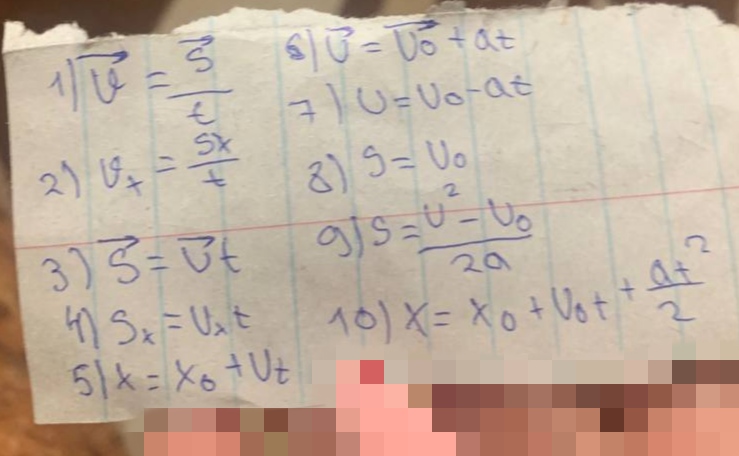 1) v⃗ = s⃗ / t
2) vₓ = sx / t
3) s⃗ = v⃗t
4) sₓ = vₓt
5) x = x₀ + vt
6) v⃗ = v⃗₀ + at
7) v = v₀ - at
8) s = v₀
9) s = v² - v₀ / 2a
10) x = x₀ + v₀t + at² / 2